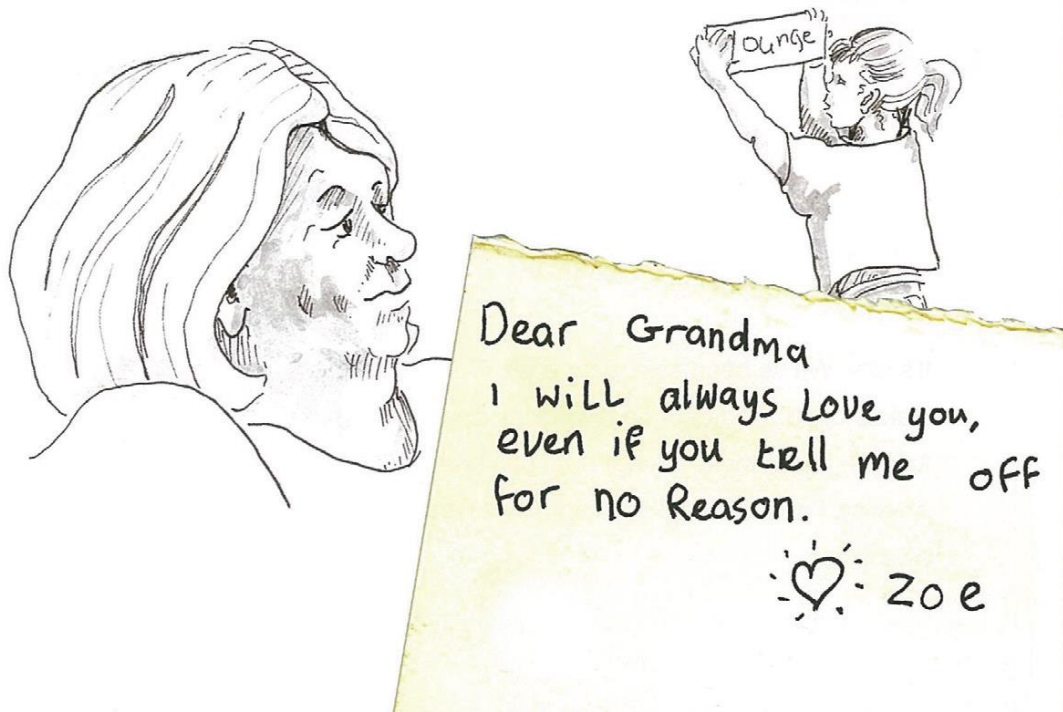 ounge
Dear Grandma
I will always Love you,
even if you tell me off
for no Reason.
Zoe